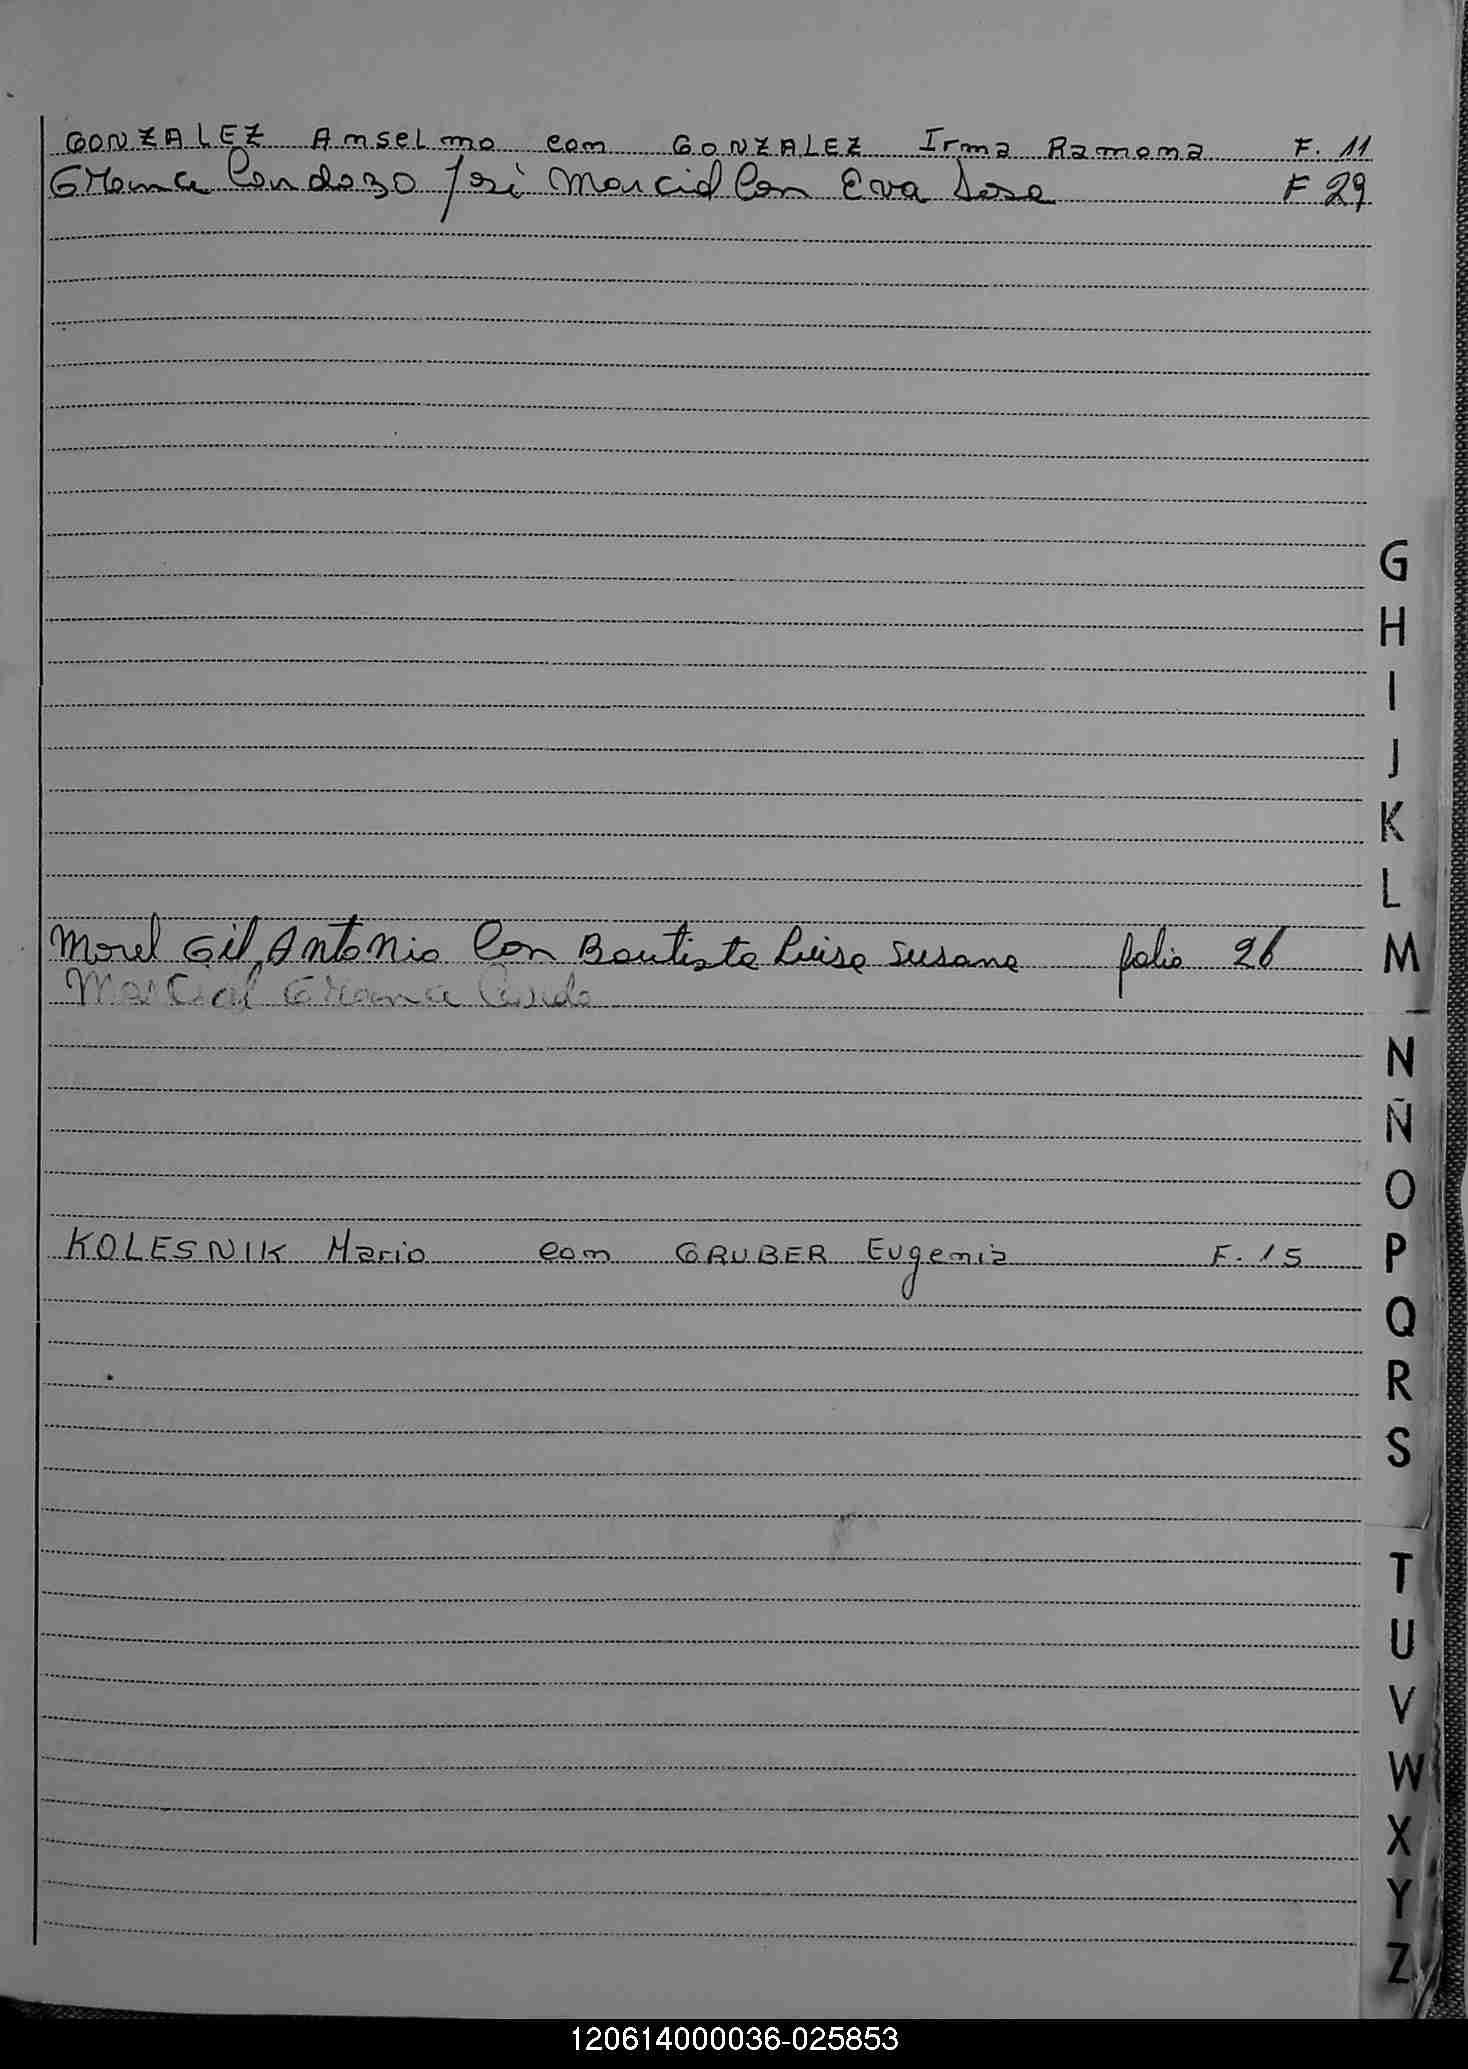 GONZALEZ Anselmo con GONZALEZ Irma Ramona F. 11
Cardozo José Marcial Con Eva Sosa F 29
G
H
I
J
K
L
Morel Gil, Antonio Con Bautista Luisa Susana folio 26 M
Marcial
N
Ñ
O
KOLESNIK Mario con GRUBER Eugenia F. 15 P
Q
R
S
T
U
V
W
X
Y
Z
120614000036-025853